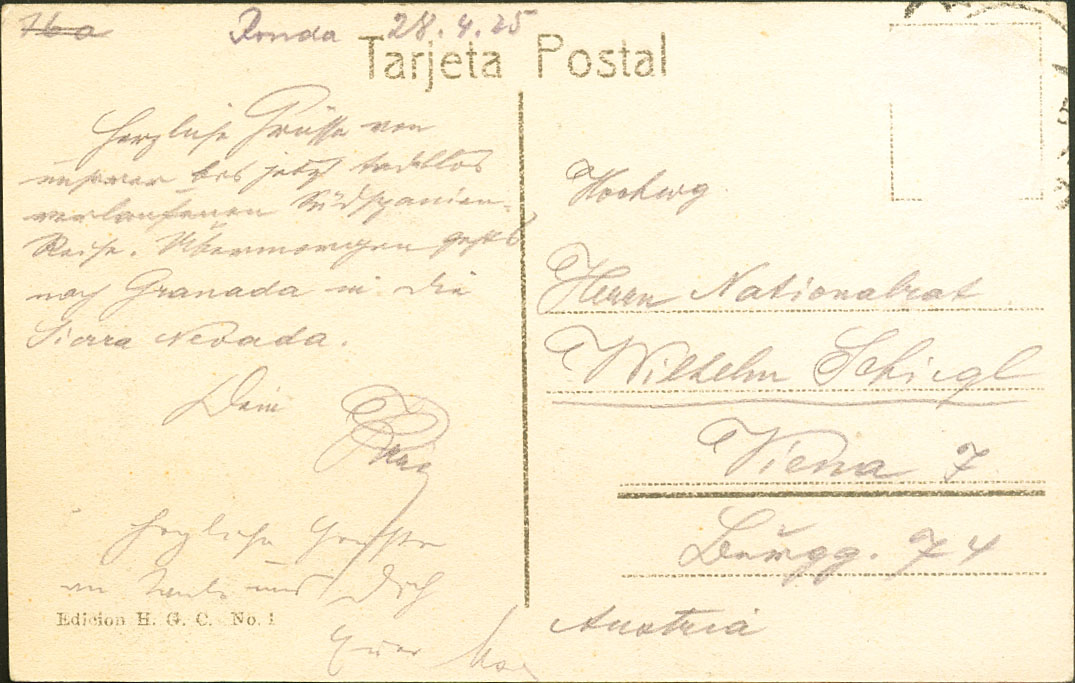 16a
Ronda 28.4.25
Tarjeta Postal
Herzliche Grüsse von
unserer bis jetzt tadellos
verlaufenen Südspanien-
Reise. Übermorgen gehts
nach Granada in die
Sierra Nevada.
Dein
Herzliche Grüsse
an und Dich
Euer
Edicion H. G. C. No. 1
Hochwg
Herrn Nationalrat
Wilhelm Schiegl
Viena 7
Burgg. 74
Austria